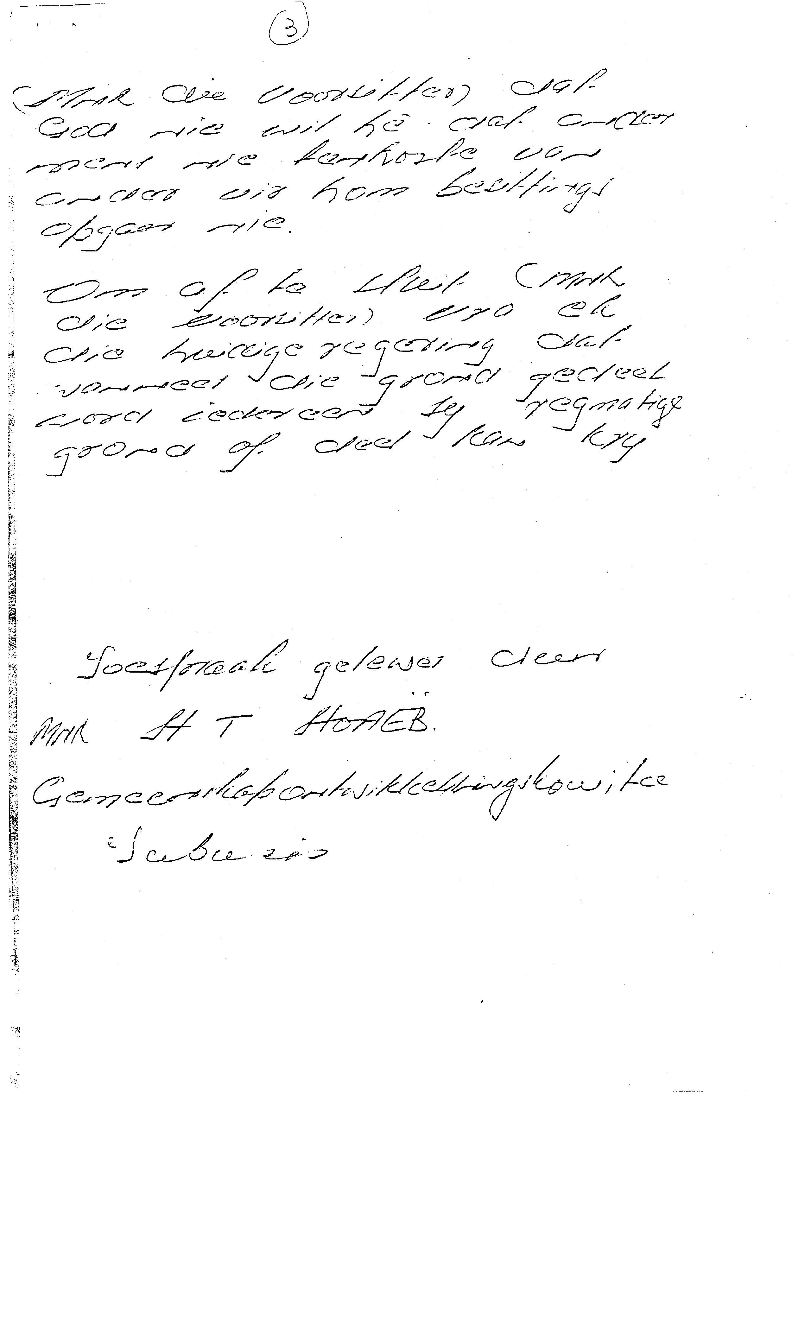 3
(Mnr die Voorsitter) dat
God nie wil hê dat ander
mens nie tenkoste van
ander vir hom besittings
opgaar nie.
Om af te sluit (Mnr
die Voorsitter) vra ek
die huidige regering dat
wanneer die grond gedeel
word iedereen sy regmatige
grond of deel kan kry
Toespraak gelewer deur
MNR H T HOAËB.
Gemeenskapontwikkellingskomitee